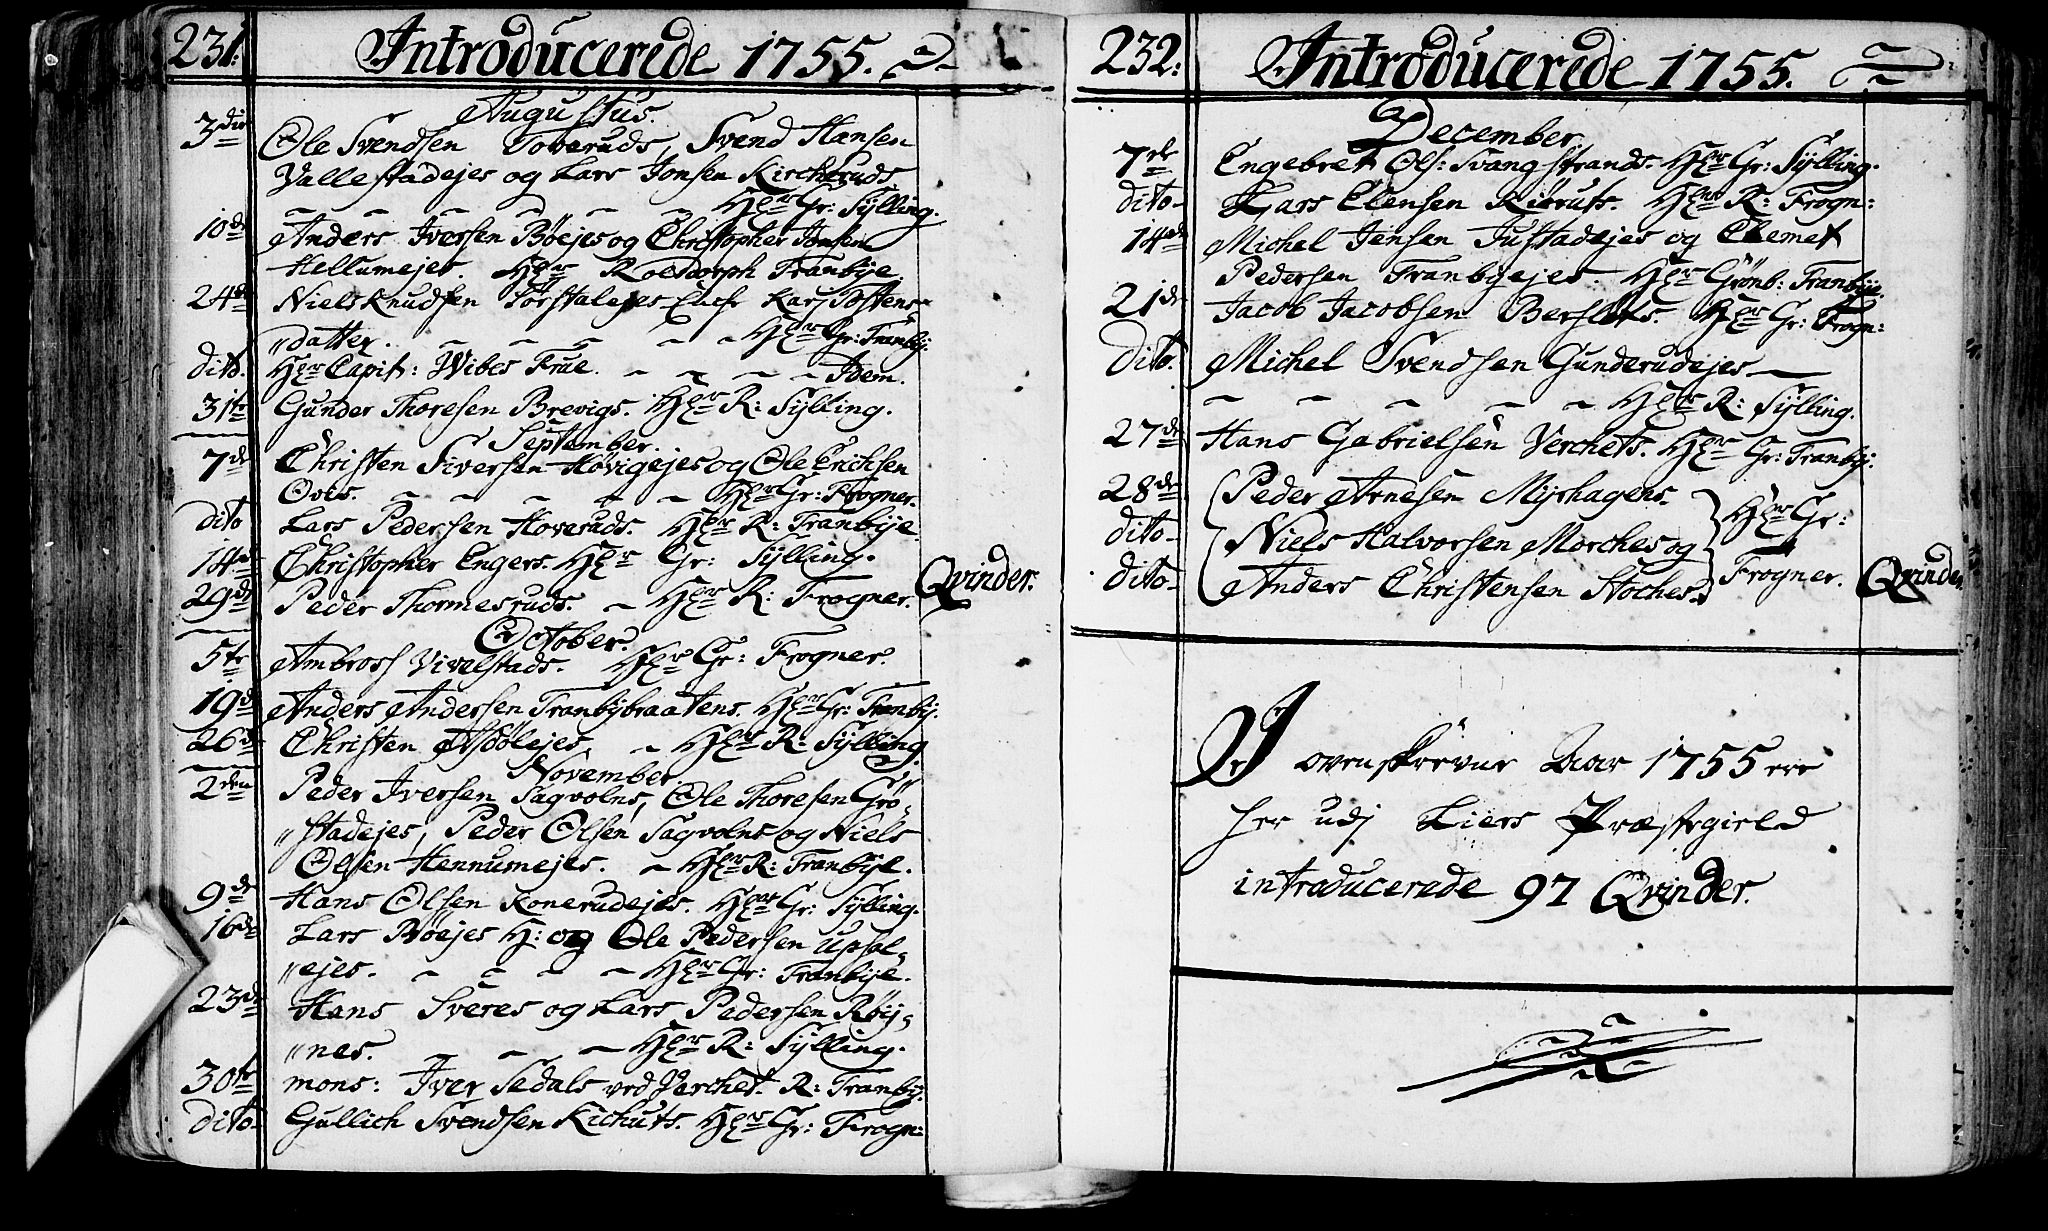 231. Introducerede 1755.
Augustus.
3die Ole Svendsen Toveruds, Svend Hansen
Vallestadejes og Lars Jonsen Kircheruds
Hr Gr: Sylling.
10de Anders Iversen Bøejes og Christopher Jonsen
Hellumejes. Hr Roedorph Tranbye.
24de Niels Knudsen Kari Tostens-
"datter. Hr Gr: Tranby.
dito. Hr Capit: Wibes Frue. Idem.
31te Gunder Thoresen Brevigs. Hr R: Sylling.
September.
7de Christen Siversen Høvigejes og Ole Erichsen
Oves. Hr Gr: Frogner.
dito Lars Pedersen Hoveruds. Hr R: Tranbye
14de Christopher Engers. Hr Gr: Sylling.
29de Peder Thormesruds. Hr R: Frogner.
Qvinder.
October.
5te Ambros Vivelstads. Hr Gr: Frogner.
19de Anders Andersen Tranbybraatens. Hr Gr: Tranby.
26de Christen Hr R: Sylling.
November.
2den Peder Iversen Sagvolns, Ole Thoresen Grø-
"stadejes, Peder Olsen Sagvolns og Niels
Olsen Hennumejes. Hr R: Tranbye.
9de Hans Olsen Konerudejes. Hr Gr: Sylling.
16de Lars Bøejes H: og Ole Pedersen Upsal-
"ejes. Hr Gr: Tranbye.
23de Hans Sveres og Lars Pedersen Røy-
"nes. Hr R: Sylling.
30te mons: Iver Sedals ved Verchet. R: Tranby.
dito Gullich Svendsen Kichuts. Hr Gr: Frogn:
232: Introducerede 1755.
December
7de Engebret Ols: Svangstrands. Hr Gr: Sylling.
dito Lars Clensen Hr R: Frogn:
14de Michel Jensen Justadejes og Clemet
Pedersen Tranbyejes. Hr Grönb: Tranbye.
21de Jacob Jacobsen Hr Gr: Frogn:
Dito. Michel Svendsen Gunderudejes
Hr R: Sylling.
27de Hans Gabrielsen Verchets. Hr Gr: Tranby.
28de Peder Arnesen Myrhagens. Hr Gr:
dito Niels Halvorsen Morches og
dito Anders Christensen Stoches. Frogner. Qvinder
I ovenskrevne Aar 1755 ere
her udj Liers Præstegield
introducerede 97 Qvinder.